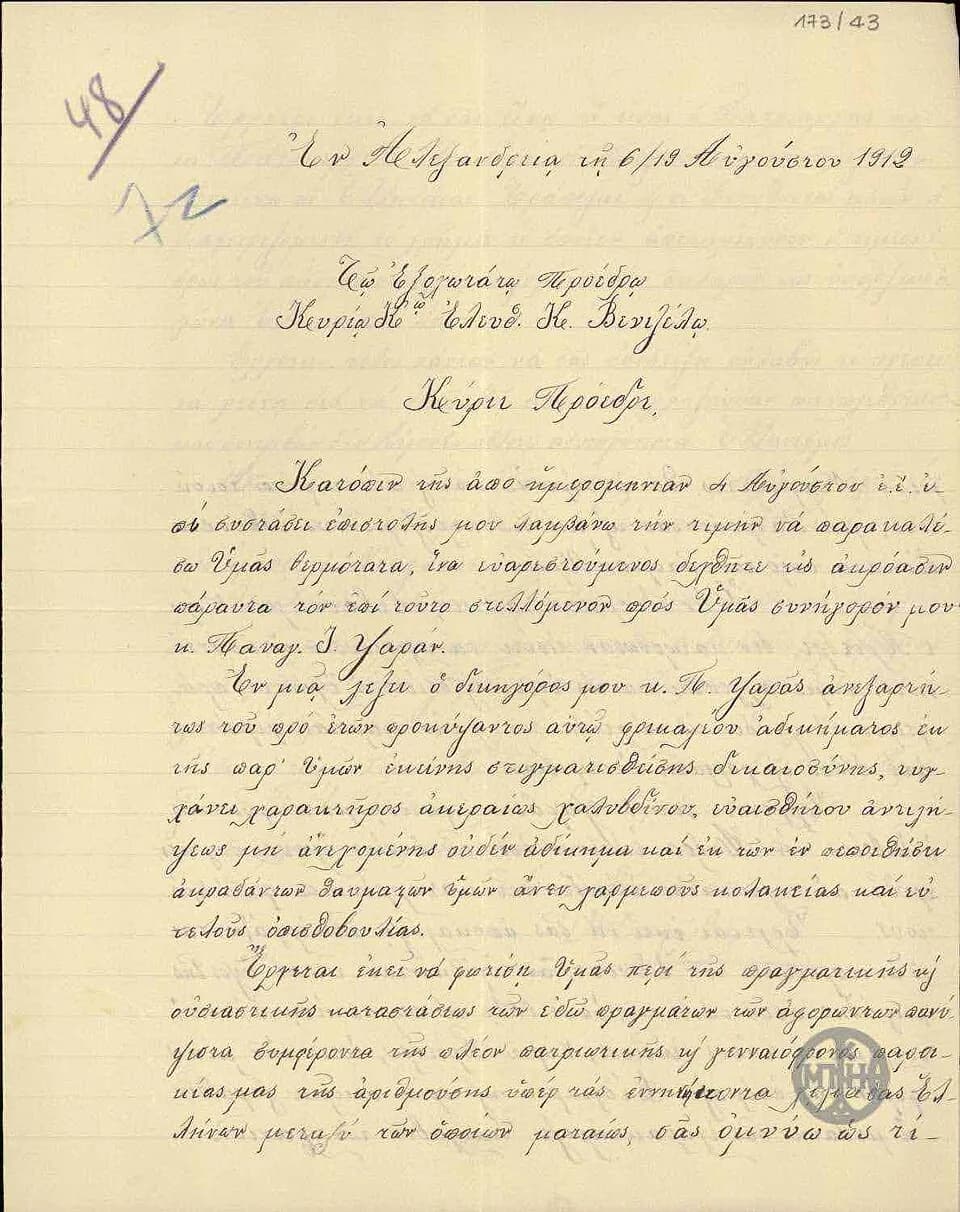 173/43
48/
72
Ἐν Ἀλεξανδρείᾳ τῇ 6/19 Αὐγούστου 1912
Τῷ Ἐξοχωτάτῳ Προέδρῳ
Κυρίῳ Κῳ Ἐλευθ. Κ. Βενιζέλῳ
Κύριε Πρόεδρε,
Κατόπιν τῆς ἀπό ἡμερομηνίαν 4 Αὐγούστου ἐ.ἔ. ὑ-
πό συστάσει ἐπιστολῆς μου λαμβάνω τήν τιμήν νά παρακαλέ-
σω Ὑμᾶς θερμότατα, ἵνα εὐαρεστούμενος δεχθῆτε εἰς ἀκρόασιν
πάραυτα τόν ἐπί τοῦτο στελλόμενον πρός Ὑμᾶς συνήγορόν μου
κ. Παναγ. Ι. Ψαρᾶν.
Ἐν μιᾷ λέξει ὁ δικηγόρος μου κ. Π. Ψαρᾶς ἀνεξαρτή-
τως τοῦ πρό ἐτῶν προκύψαντος αὐτῷ φρικαλέου ἀδικήματος ἐκ
τῆς παρ' Ὑμῶν ἐκείνης στιγματισθείσης δικαιοσύνης, τυγ-
χάνει χαρακτῆρος ἀκεραίως χαλυβδίνου, εὐαισθήτου ἀντιλή-
ψεως μή ἀνεχομένης οὐδέν ἀδίκημα καί ἐκ τῶν ἐν πεποιθήσει
ἀκραδάντων θαυμαστῶν ὑμῶν ἄνευ χαμερποῦς κολακείας καί εὐ
τελοῦς ὀπισθοβουλίας.
Ἔρχεται ἐκεῖ νά φωτίσῃ Ὑμᾶς περί τῆς πραγματικῆς κ'
οὐσιαστικῆς καταστάσεως τῶν ἐδῶ πραγμάτων τῶν ἀφορώντων πανύ-
ψιστα συμφέροντα τῆς πλέον πατριωτικῆς κ' γενναιόφρονος παροι-
κίας μας τῆς ἀριθμούσης ὑπέρ τάς ἐννενήκοντα χιλιάδας Ἑλ-
λήνων μεταξύ τῶν ὁποίων ματαίως, σᾶς ὀμνύω ὡς τί-
ΜΠΗ